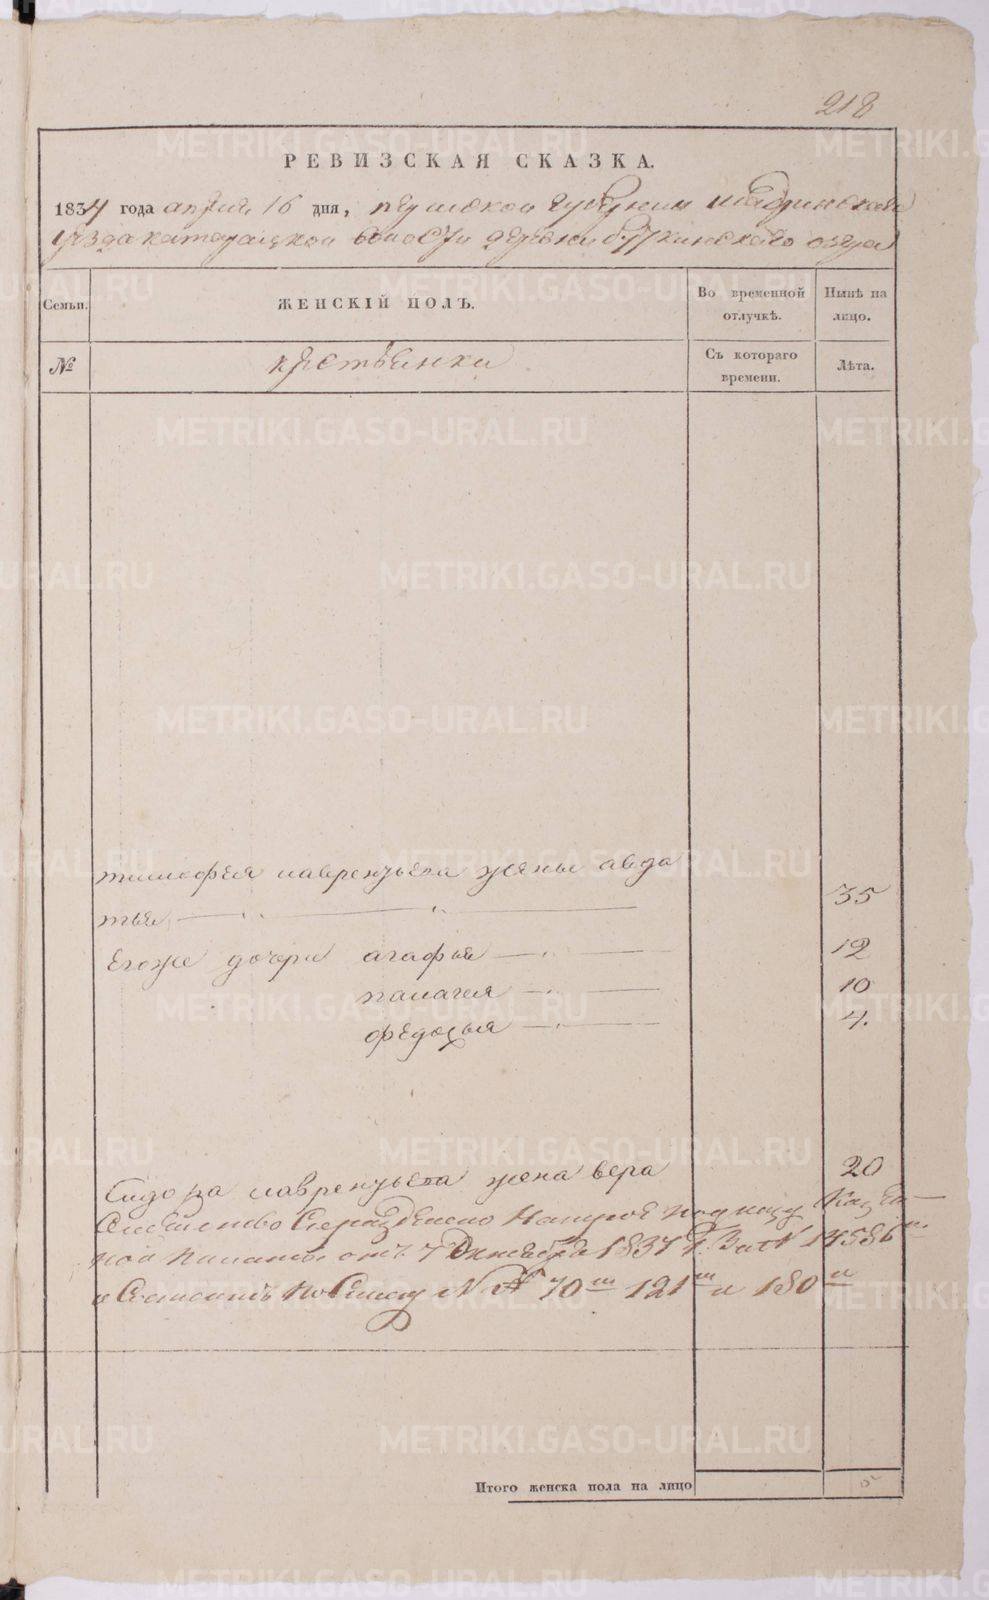 218
РЕВИЗСКАЯ СКАЗКА.
1834 года апреля 16 дня, пермской губернии шадринскаго
уезда катайской волости деревни буткинскаго озера
Семьи. ЖЕНСКІЙ ПОЛЪ. Во временной отлучкѣ. Нынѣ на лицо.
№ крестьянки Съ котораго времени. Лѣта.
тимофея лаврентьева жены авдо
тья 35
Его же дочери агафья 12
палагея 10
федосья 4.
Сидора лаврентьева жена вера 20
Семейство Сие Казен
ной палаты отъ 7 Октября 1837 г. За № 14586
и Состоитъ по Списку № 70 121 и 180
Итого женска пола на лицо
METRIKI.GASO-URAL.RU